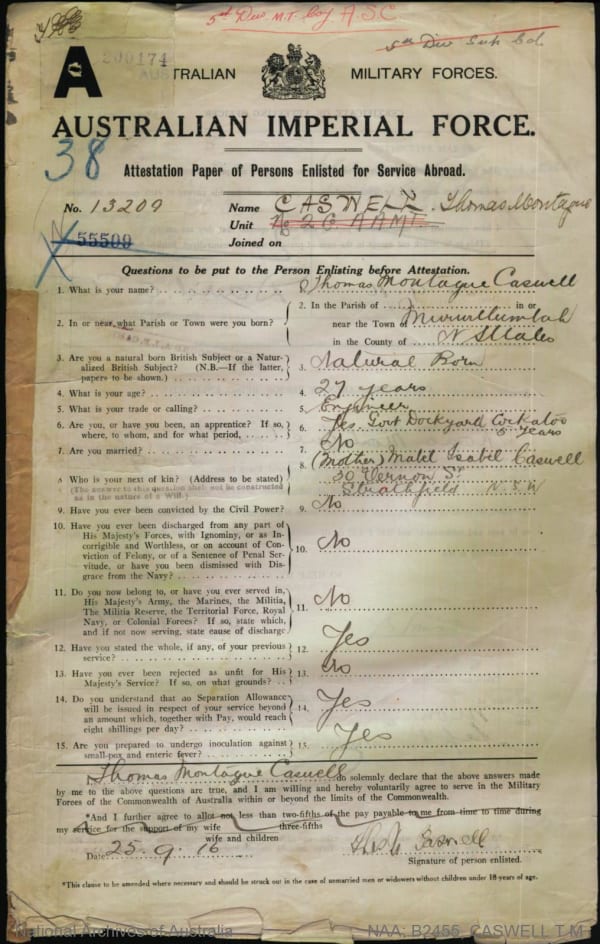 5th Div M.T. Coy A.S.C
5th Div Sup Col
A 200174
AUSTRALIAN MILITARY FORCES.
AUSTRALIAN IMPERIAL FORCE.
38
Attestation Paper of Persons Enlisted for Service Abroad.
No. 13209 Name CASWELL. Thomas Montague
Unit
55509 Joined on
Questions to be put to the Person Enlisting before Attestation.
1. What is your name? 1. Thomas Montague Caswell
2. In or near what Parish or Town were you born? 2. In the Parish of in or
near the Town of Murwillumbah
in the County of N S Wales
3. Are you a natural born British Subject or a Natur-
alized British Subject? (N.B.—If the latter,
papers to be shown.) 3. Natural Born
4. What is your age? 4. 27 years
5. What is your trade or calling? 5. Engineer
6. Are you, or have you been, an apprentice? If so,
where, to whom, and for what period, 6. Yes Govt Dockyard Cockatoo
5 years
7. Are you married? 7. No
8. Who is your next of kin? (Address to be stated) 8. (Mother) Mabel Isabel Caswell
(The answer to this question shall not be constructed
as in the nature of a Will.)
30 Vernon St
Strathfield N.S.W
9. Have you ever been convicted by the Civil Power? 9. No
10. Have you ever been discharged from any part of
His Majesty's Forces, with Ignominy, or as In-
corrigible and Worthless, or on account of Con-
viction of Felony, or of a Sentence of Penal Ser-
vitude, or have you been dismissed with Dis-
grace from the Navy? 10. No
11. Do you now belong to, or have you ever served in,
His Majesty's Army, the Marines, the Militia,
The Militia Reserve, the Territorial Force, Royal
Navy, or Colonial Forces? If so, state which,
and if not now serving, state cause of discharge 11. No
12. Have you stated the whole, if any, of your previous
service? 12. Yes
13. Have you ever been rejected as unfit for His
Majesty's Service? If so, on what grounds? 13. No
14. Do you understand that no Separation Allowance
will be issued in respect of your service beyond
an amount which, together with Pay, would reach
eight shillings per day? 14. Yes
15. Are you prepared to undergo inoculation against
small-pox and enteric fever? 15. Yes
I, Thomas Montague Caswell do solemnly declare that the above answers made
by me to the above questions are true, and I am willing and hereby voluntarily agree to serve in the Military
Forces of the Commonwealth of Australia within or beyond the limits of the Commonwealth.
*And I further agree to allot not less than two-fifths of the pay payable to me from time to time during
my service for the support of my wife three-fifths
wife and children
Date 25.9.16 Caswell
Signature of person enlisted.
*This clause to be amended where necessary and should be struck out in the case of unmarried men or widowers without children under 18 years of age.
National Archives of Australia NAA: B2455, CASWELL T M